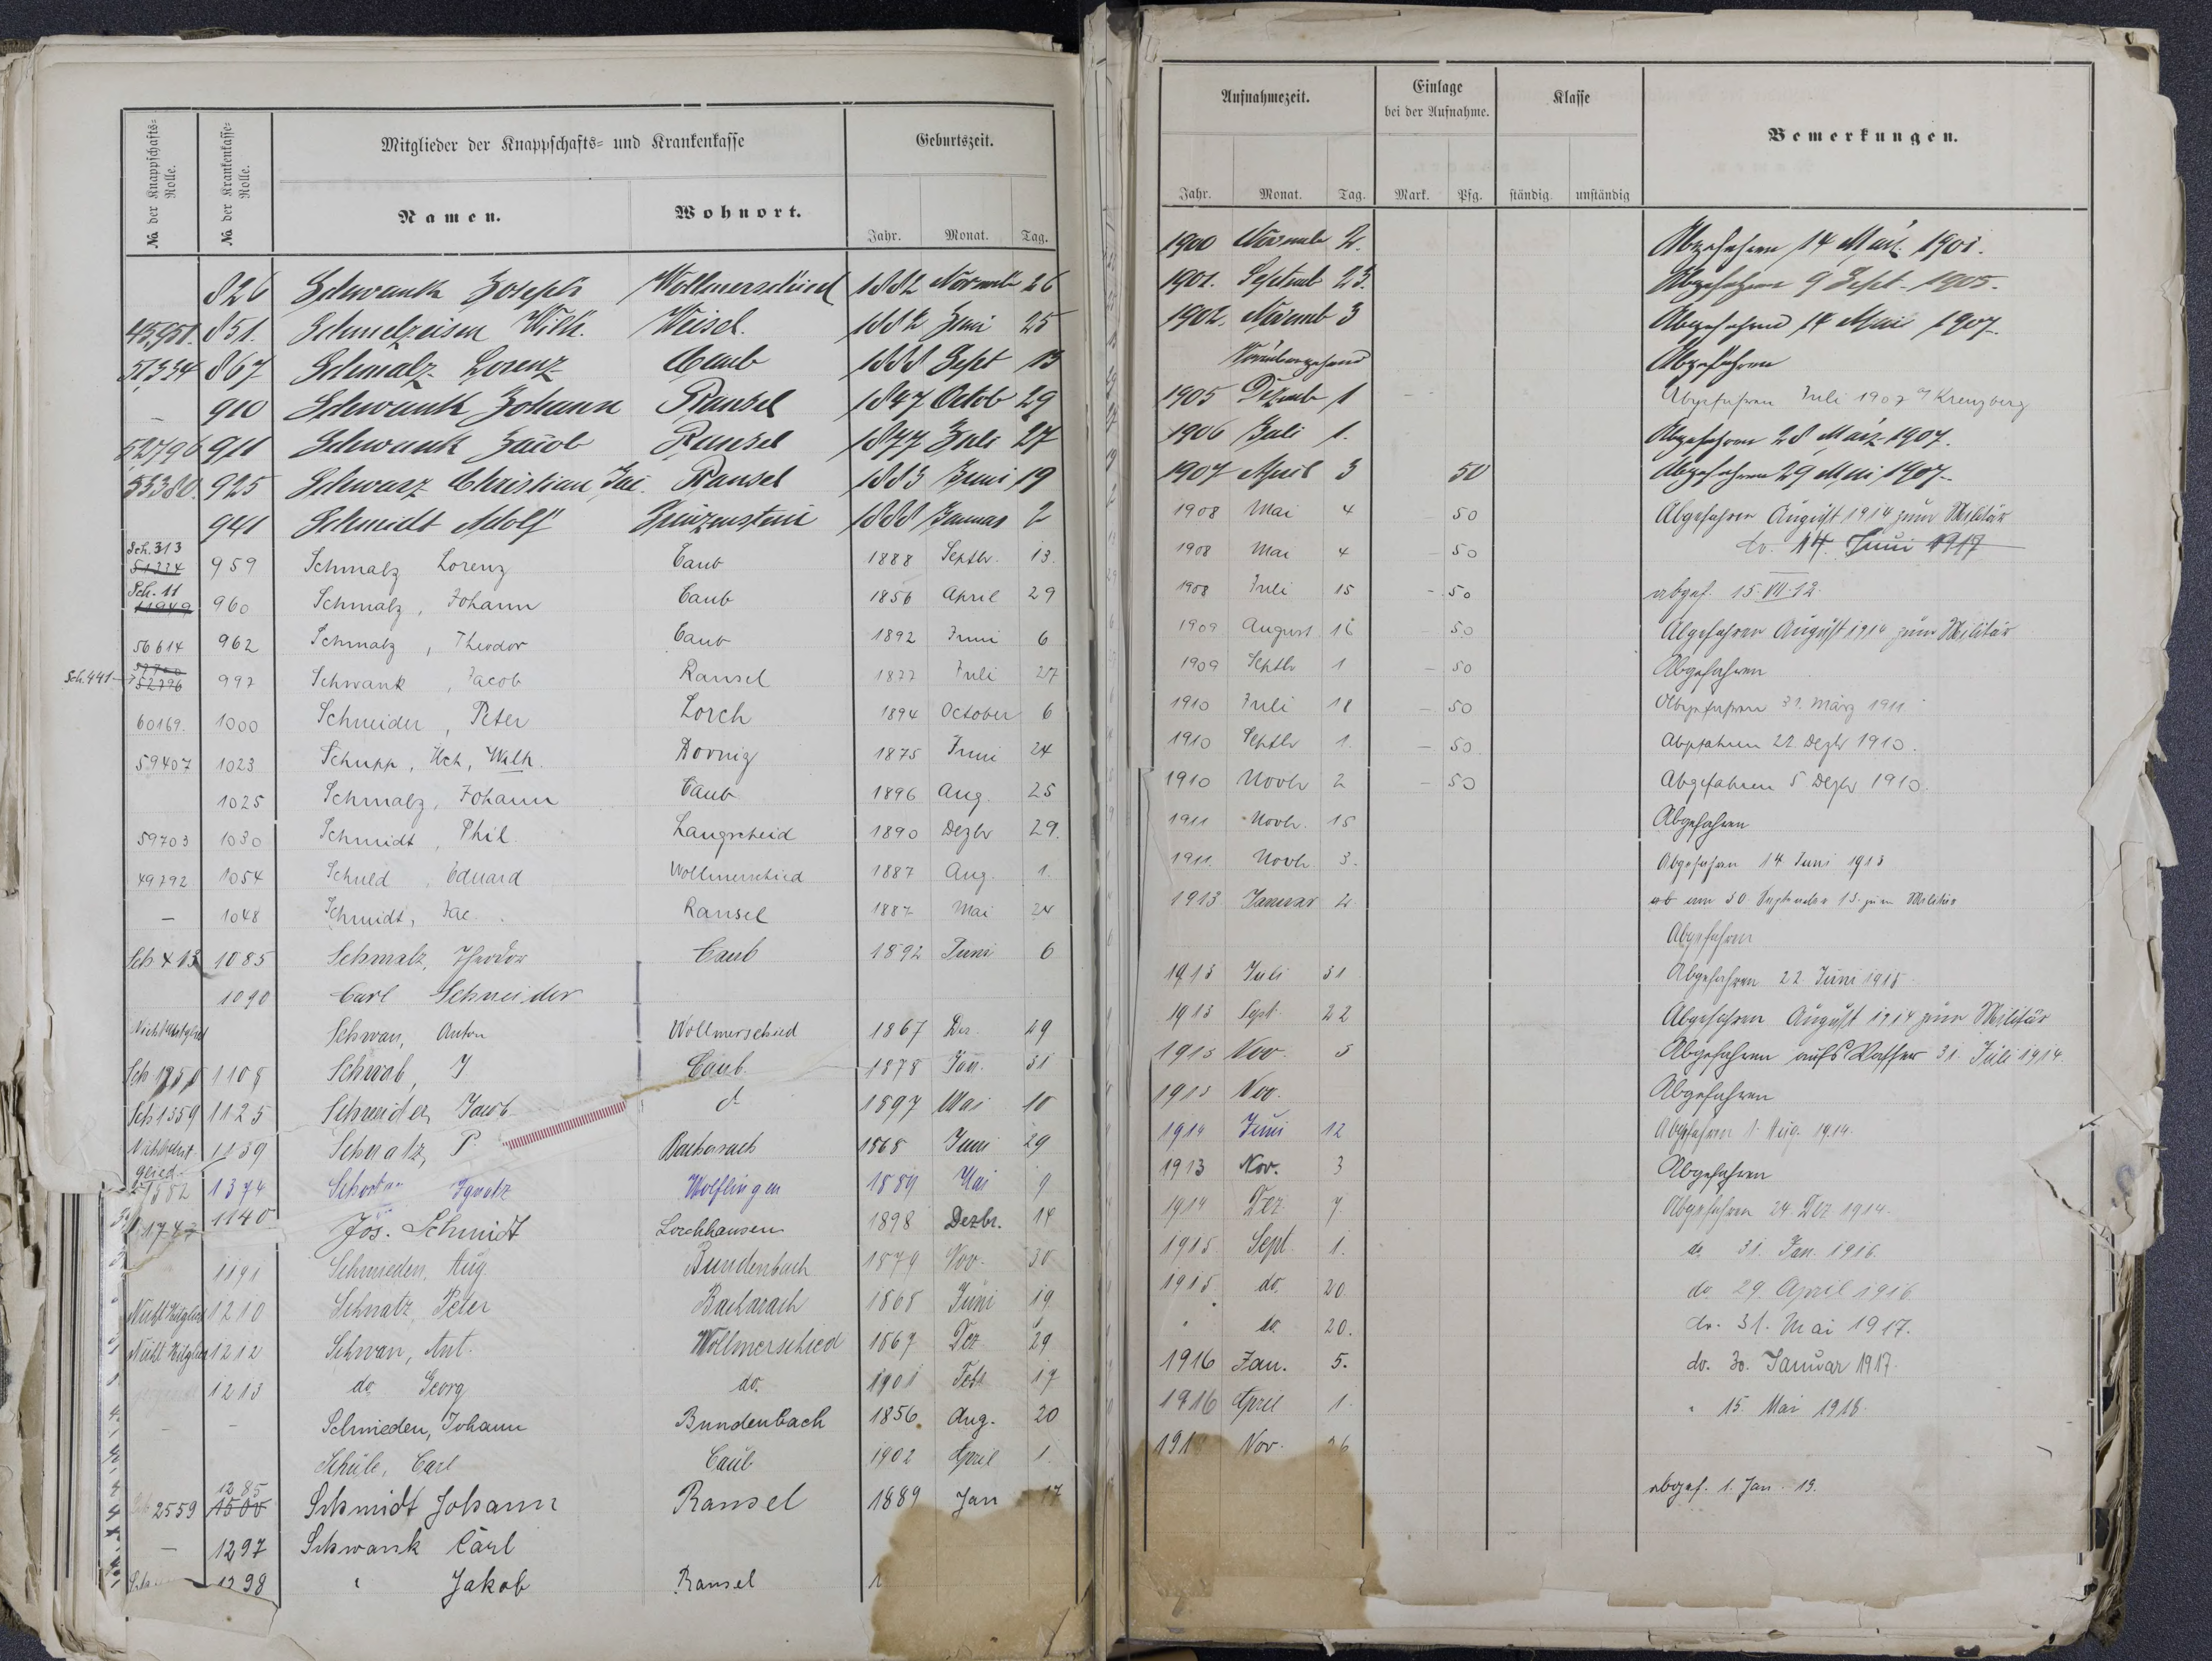 No. der Knappschafts-Rolle.
No. der Krankenkasse-Rolle.
Mitglieder der Knappschafts- und Krankenkasse
Geburtszeit.
Namen. Wohnort. Jahr. Monat. Tag.
826 Schwank Joseph Wollmerschied 1882 Novemb 26
45951. 851. Schmelzeisen Wilh. Weisel. 1882 Juni 25
51334 867 Schmalz Lorenz Caub 1888 Sept 13
– 910 Schwank Johann Ransel 1847 Octob 29
52796 911 Schwank Jacob Ransel 1877 Juli 27
53380. 925 Schwarz Christian Jac. Ransel 1883 Juni 19
941 Schmidt Adolf 1888 Januar 2
Sch. 313
51334 959 Schmalz Lorenz Caub 1888 Septbr. 13.
Sch. 11
11949 960 Schmalz, Johann Caub 1856 April 29
56614 962 Schmalz, Theodor Caub 1892 Juni 6
Sch. 441 52796 997 Schwank, Jacob Ransel 1877 Juli 27
60169. 1000 Schneider, Peter Lorch 1894 October 6
59407 1023 Schupp, Hch, Wilh. Dörnig 1875 Juni 24
1025 Schmalz, Johann Caub 1896 Aug. 25
59703 1030 Schmidt, Phil. Langscheid 1890 Dezbr 29.
49792 1054 Schuld, Eduard Wollmerschied 1887 Aug. 1.
– 1048 Schmidt, Jac. Ransel 1887 Mai 24
1085 Schmalz, Theodor Caub 1892 Juni 6
1090 Carl Schneider
Nichtmitglied Schwan, Anton Wollmerschied 1867 Dez. 29
1108 Schwab, J Caub 1878 Jan. 31
Sch 1359 1125 Schneider, Jacob d 1897 Mai 10
1139 Schnatz, P Bacharach 1868 Juni 29
glied
1374 Ignatz Wolflingen 1889 Mai 9
1140 Jos. Schmidt Lorchhausen 1898 Dezbr. 14
1191 Schmieden, Aug. Bundenbach 1879 Nov. 30
Nicht Mitglied 1210 Schnatz, Peter Bacharach 1868 Juni 19
Nicht Mitglied 1212 Schwan, Ant. Wollmerschied 1867 Dez 29
1213 do Georg do. 1901 Febr 17
– – Schmieden, Johann Bundenbach 1856. Aug. 20
Schüle, Carl Caub 1902 April 1.
1285
2559 1500 Schmidt Johann Ransel 1889 Jan 17
– 1297 Schwank Carl
1298 " Jakob Ransel
Aufnahmezeit. Einlage bei der Aufnahme. Klasse Bemerkungen.
Jahr. Monat. Tag. Mark. Pfg. ständig. unständig
1900 Novemb 2. Abgefahren 14 März 1901.
1901. Septemb 23. Abgefahren 9 Sept. 1905.
1902. Novemb 3 Abgefahren 14 Mai 1907.
Vorübergehend Abgefahren
1905 Dezemb 1 Abgefahren Juli 1907 Kreuzberg
1906 Juli 1. Abgefahren 28 März 1907.
1907 April 3 50 Abgefahren 29 Mai 1907.
1908 Mai 4 – 50 Abgefahren August 1914 zum Militär
1908 Mai 4 – 50 do. 14. Juni 1917
1908 Juli 15 – 50 abgef. 15. VII. 12.
1909 August 16 – 50 Abgefahren August 1914 zum Militär
1909 Septbr 1 – 50 Abgefahren
1910 Juli 18 – 50 Abgefahren 31. März 1911.
1910 Septbr 1. – 50 Abgefahren 22. Dezbr 1910.
1910 Novbr 2 – 50 Abgefahren 5 Dezbr 1910.
1911 Novbr. 15 Abgefahren
1911. Novbr. 3. Abgefahren 14 Juni 1913
1913 Januar 2 ab am 30. September 13. zum Militär
Abgefahren
1913 Juli 31 Abgefahren 22. Juni 1915
1913 Sept. 22 Abgefahren August 1914 zum Militär
1913 Nov. 5 Abgefahren aufs Wasser 31. Juli 1914.
1913 Nov. Abgefahren
1914 Juni 12 Abgefahren 1. Aug. 1914.
1913 Nov. 3 Abgefahren
1914 Dez. 7. Abgefahren 24. Dez 1914.
1915 Sept. 1. do 31. Jan. 1916.
1915 do. 20. do 29. April 1916
" do. 20. do. 31. Mai 1917.
1916 Jan. 5. do. 30. Januar 1917.
1916 April 1. " 15. Mai 1918.
Nov. 26
abgef. 1. Jan. 19.